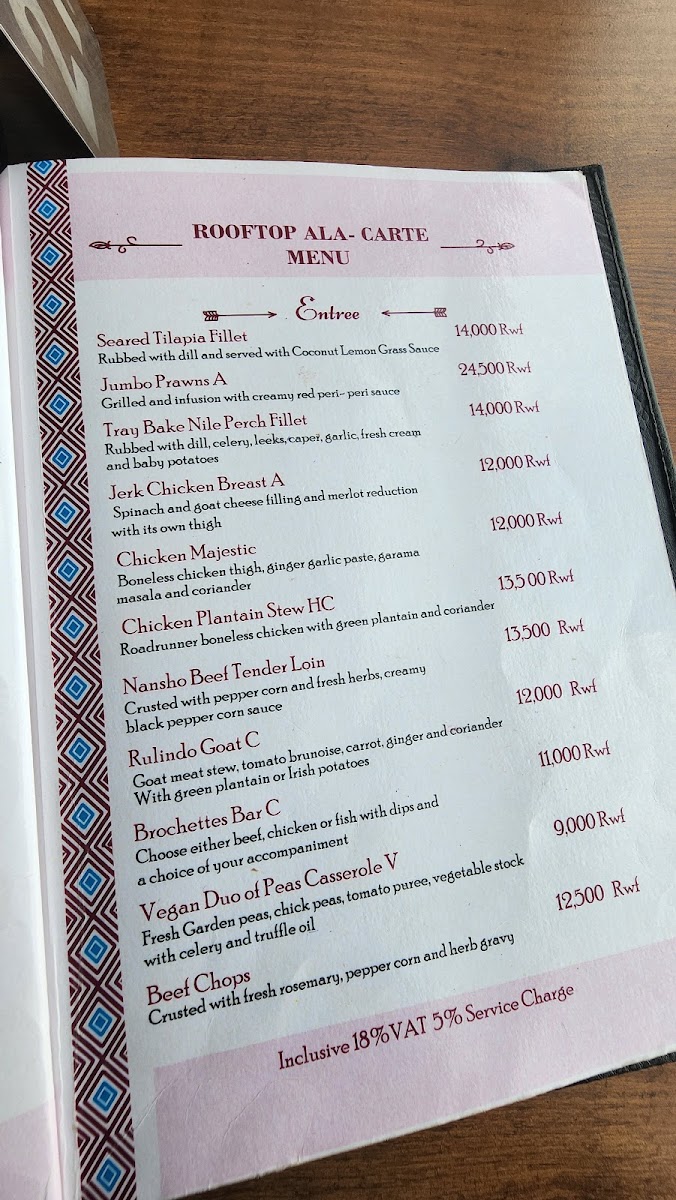 ROOFTOP ALA- CARTE
MENU
Entree
Seared Tilapia Fillet 14,000 Rwf
Rubbed with dill and served with Coconut Lemon Grass Sauce
Jumbo Prawns A 24,500 Rwf
Grilled and infusion with creamy red peri- peri sauce
Tray Bake Nile Perch Fillet 14,000 Rwf
Rubbed with dill, celery, leeks, caper, garlic, fresh cream
and baby potatoes
Jerk Chicken Breast A 12,000 Rwf
Spinach and goat cheese filling and merlot reduction
with its own thigh
Chicken Majestic 12,000 Rwf
Boneless chicken thigh, ginger garlic paste, garama
masala and coriander
Chicken Plantain Stew HC 13,500 Rwf
Roadrunner boneless chicken with green plantain and coriander
Nansho Beef Tender Loin 13,500 Rwf
Crusted with pepper corn and fresh herbs, creamy
black pepper corn sauce
Rulindo Goat C 12,000 Rwf
Goat meat stew, tomato brunoise, carrot, ginger and coriander
With green plantain or Irish potatoes
Brochettes Bar C 11,000 Rwf
Choose either beef, chicken or fish with dips and
a choice of your accompaniment
Vegan Duo of Peas Casserole V 9,000 Rwf
Fresh Garden peas, chick peas, tomato puree, vegetable stock
with celery and truffle oil
Beef Chops 12,500 Rwf
Crusted with fresh rosemary, pepper corn and herb gravy
Inclusive 18%VAT 5% Service Charge